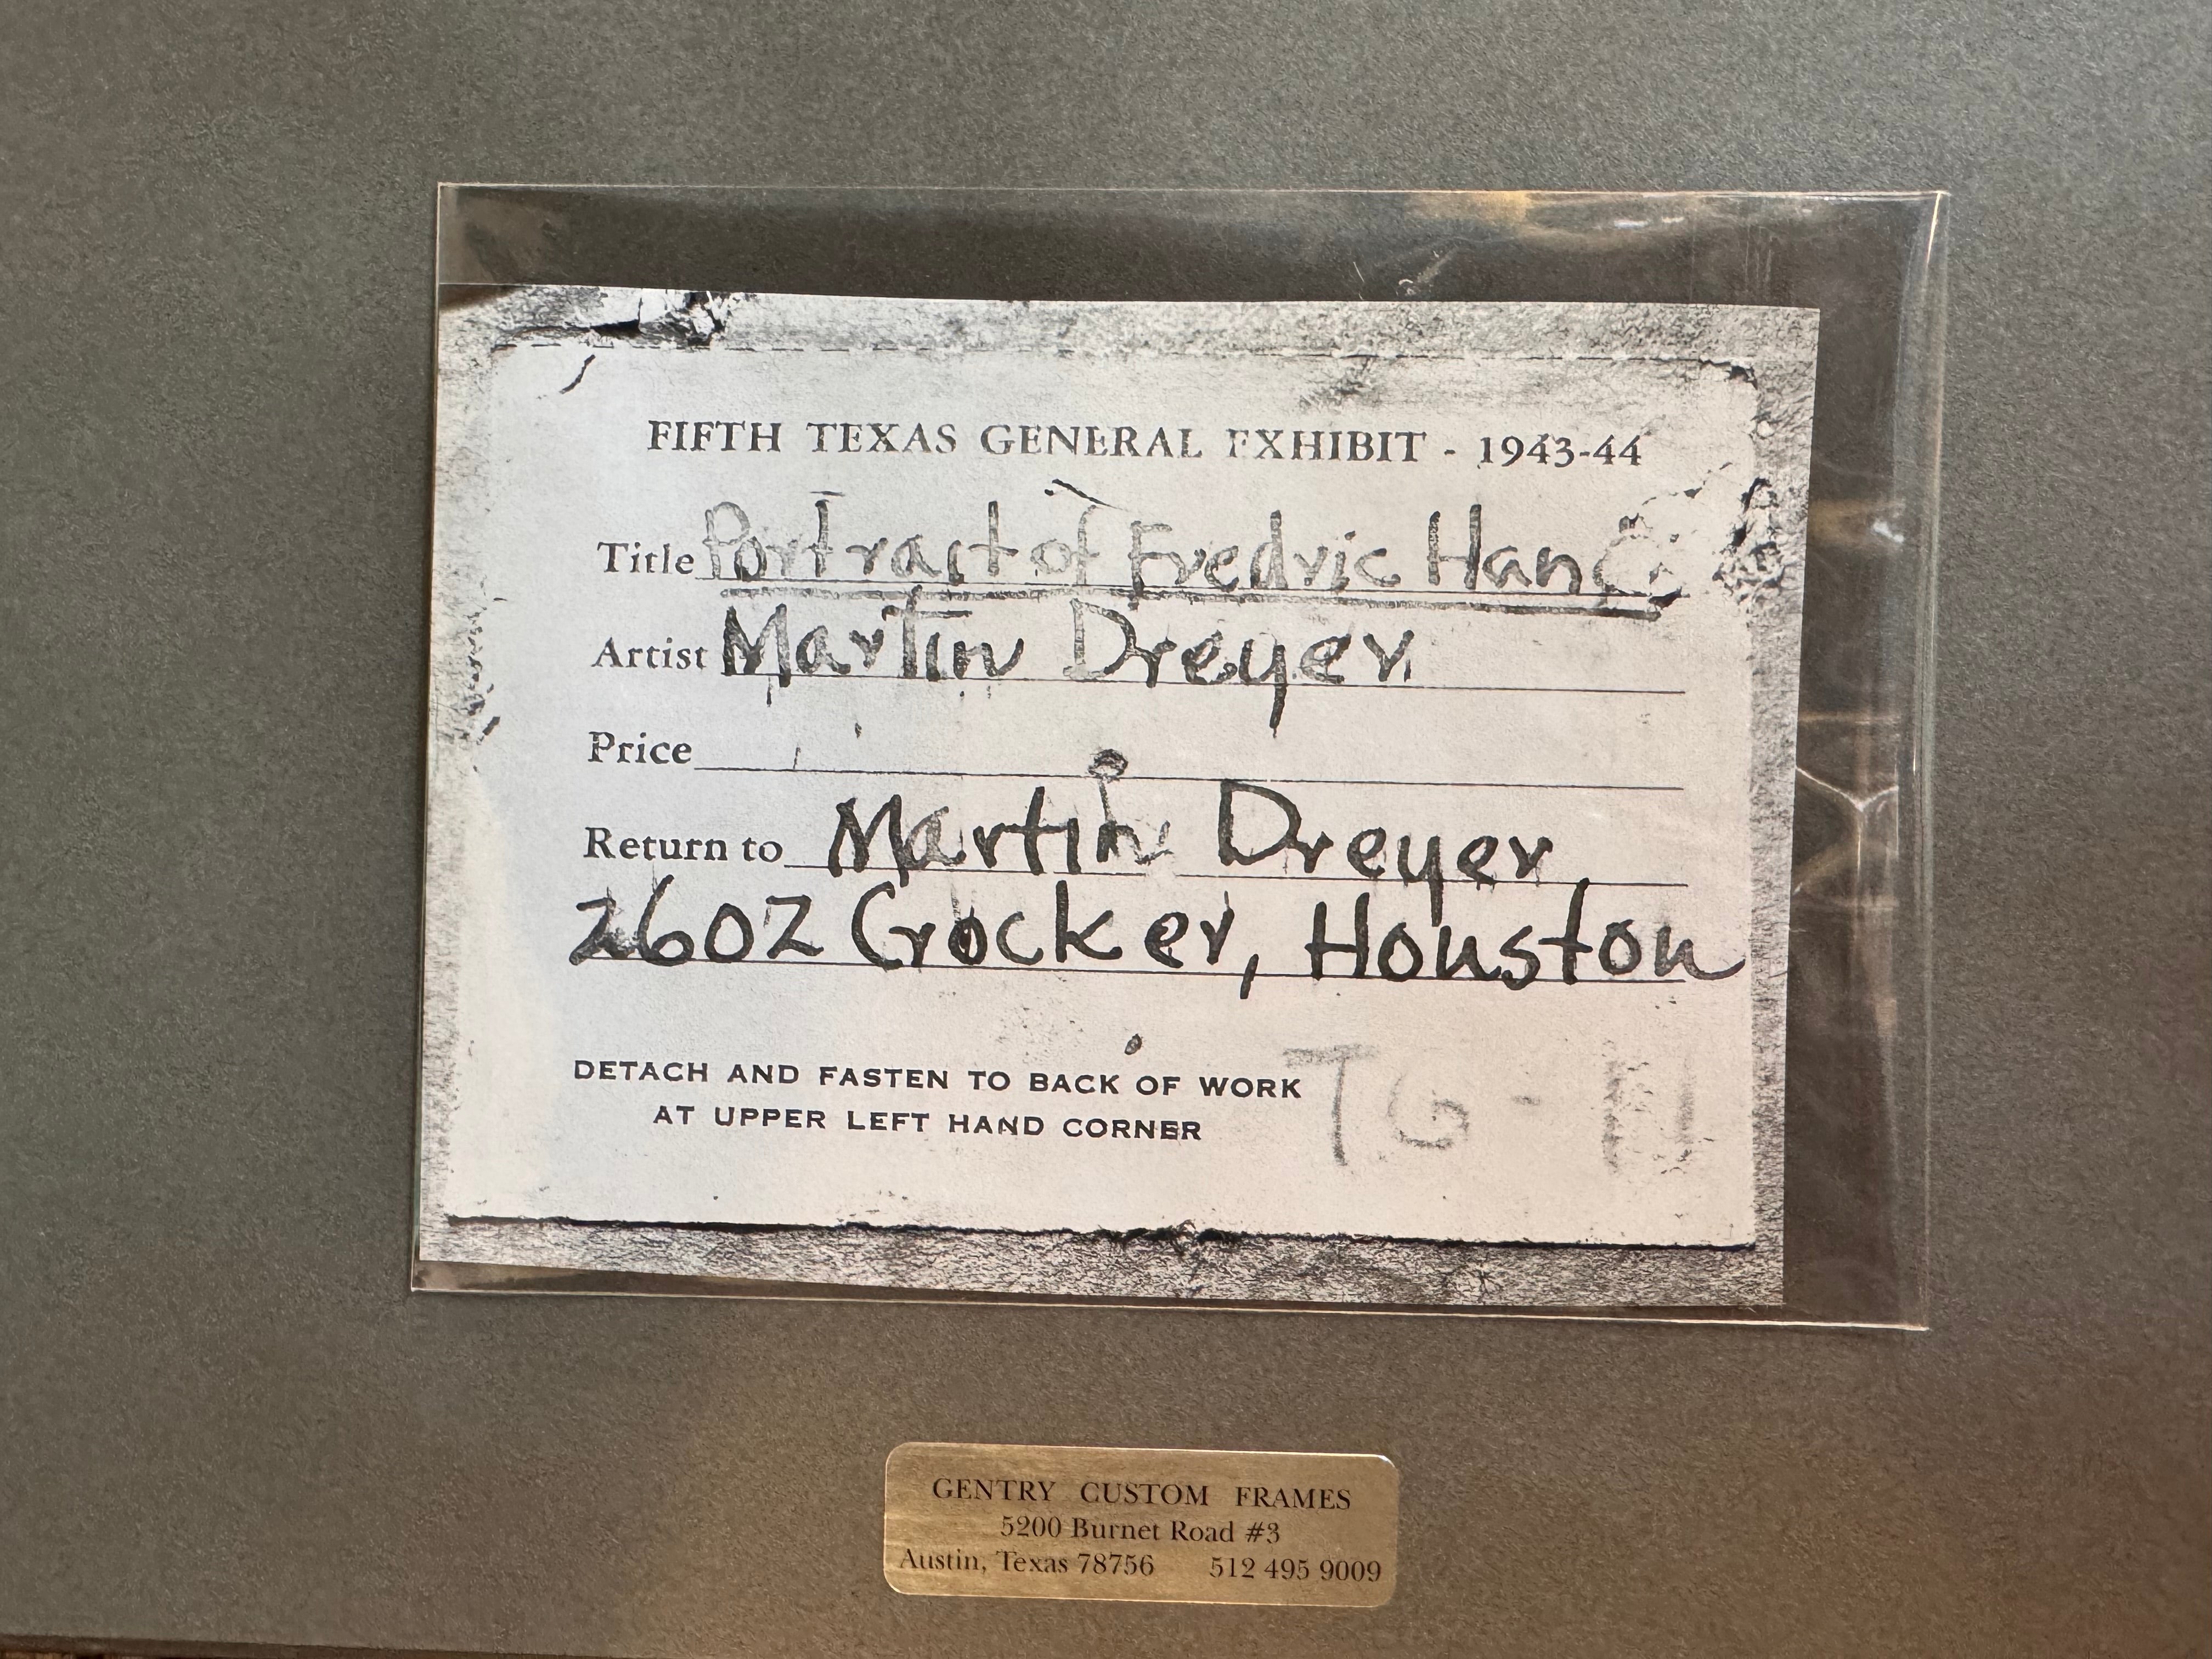 FIFTH TEXAS GENERAL EXHIBIT - 1943-44
Title Portrait of Fredric
Artist Martin Dreyer
Price
Return to Martin Dreyer
2602 Crocker, Houston
DETACH AND FASTEN TO BACK OF WORK
AT UPPER LEFT HAND CORNER
GENTRY CUSTOM FRAMES
5200 Burnet Road #3
Austin, Texas 78756 512 495 9009